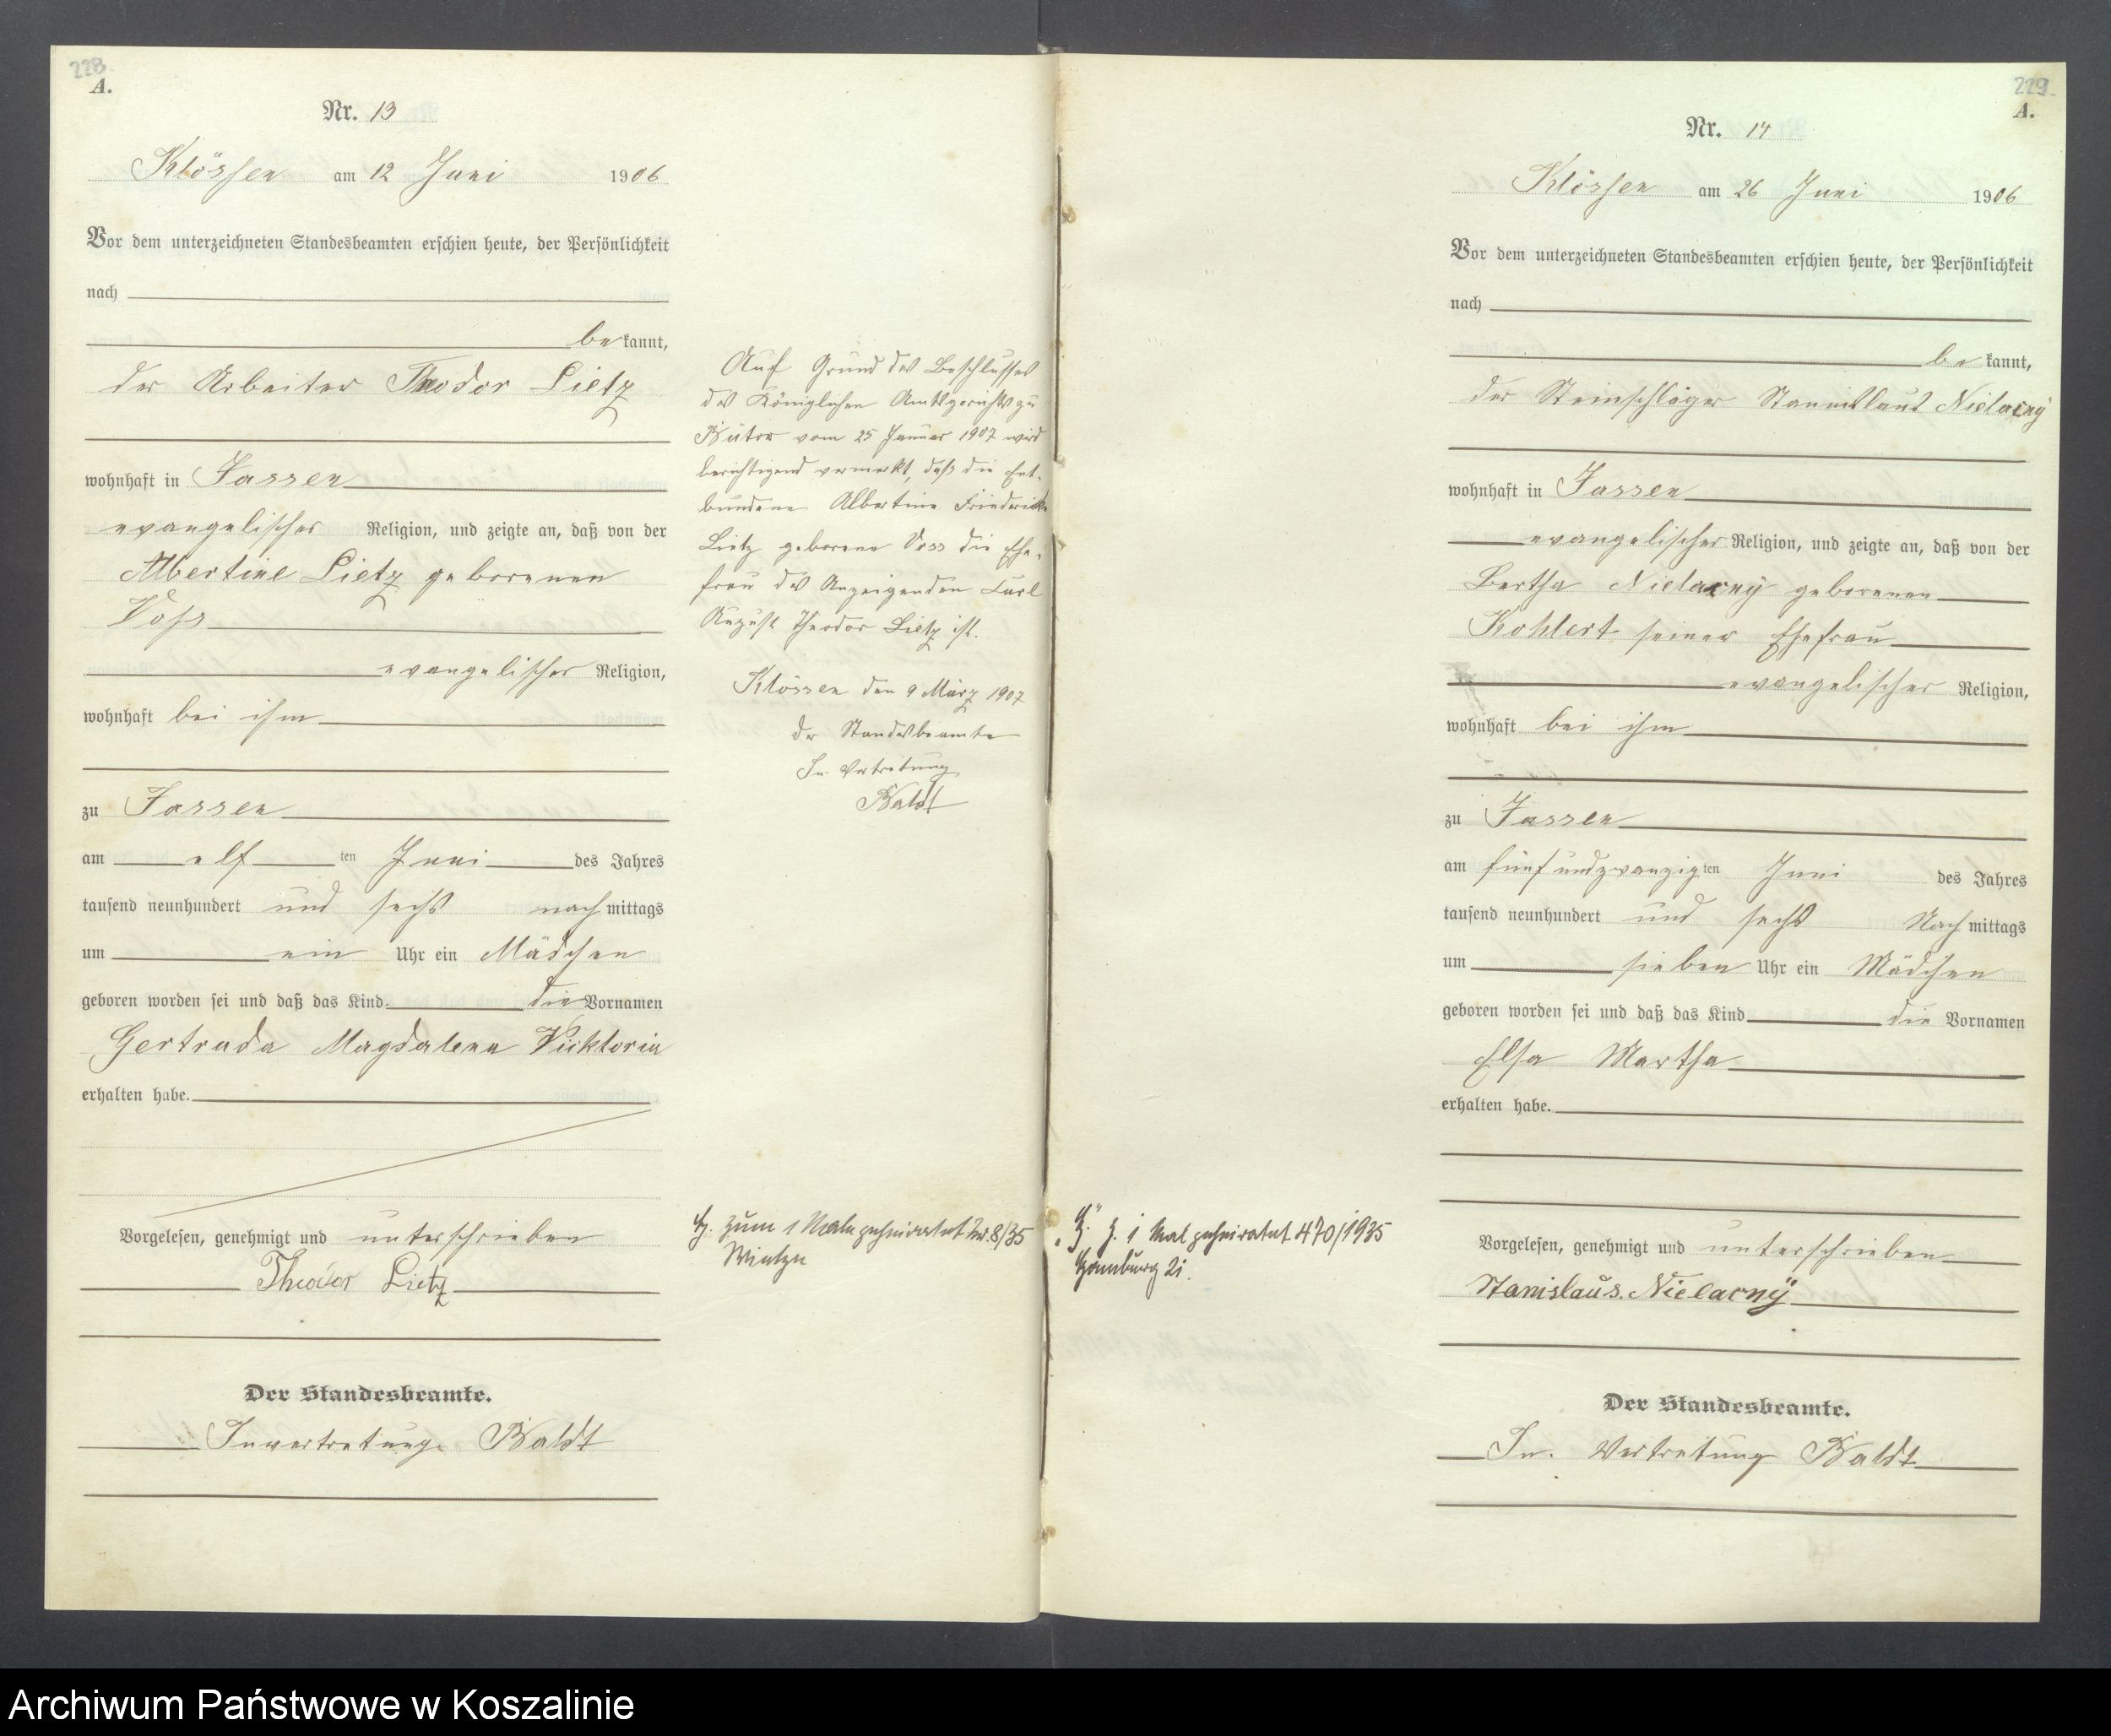 228
A.
Nr. 13
Klössen am 12 Juni 1906
Vor dem unterzeichneten Standesbeamten erschien heute, der Persönlichkeit
nach
be kannt,
der Arbeiter Theodor Lietz
wohnhaft in Jassen
evangelischer Religion, und zeigte an, daß von der
Albertine Lietz geborenen
Voss
evangelischer Religion,
wohnhaft bei ihm
zu Jassen
am elf ten Juni des Jahres
tausend neunhundert und sechs nach mittags
um ein Uhr ein Mädchen
geboren worden sei und daß das Kind die Vornamen
Gertruda Magdalena Vicktoria
erhalten habe.
Vorgelesen, genehmigt und unterschrieben
Theodor Lietz
Der Standesbeamte.
Invertretung. Baldt
Auf Grund des Beschlusses
des Königlichen Amtsgerichts zu
Bütow vom 25 Januar 1907 wird
berichtigend vermerkt, daß die Ent-
bundene Albertine Friederike
Lietz geborene Voss die Ehe-
frau des Anzeigenden Carl
August Theodor Lietz ist.
Klössen den 9 März 1907
Der Standesbeamte
In Vertretung
Baldt
zum 1 Male geheiratet Nr. 8/35
229.
A.
Nr. 14
Klössen am 26 Juni 1906
Vor dem unterzeichneten Standesbeamten erschien heute, der Persönlichkeit
nach
be kannt,
der Steinschläger Stanislaus Nielacny
wohnhaft in Jassen
evangelischer Religion, und zeigte an, daß von der
Bertha Nielacny geborenen
Kohlert seiner Ehefrau
evangelischer Religion,
wohnhaft bei ihm
zu Jassen
am fünfundzwanzig ten Juni des Jahres
tausend neunhundert und sechs Nach mittags
um sieben Uhr ein Mädchen
geboren worden sei und daß das Kind die Vornamen
Elsa Martha
erhalten habe.
Vorgelesen, genehmigt und unterschrieben
Stanislaus. Nielacny
Der Standesbeamte.
In. Vertretung Baldt
z. 1 Mal geheiratet 470/1935
Hamburg 2i.
Archiwum Państwowe w Koszalinie